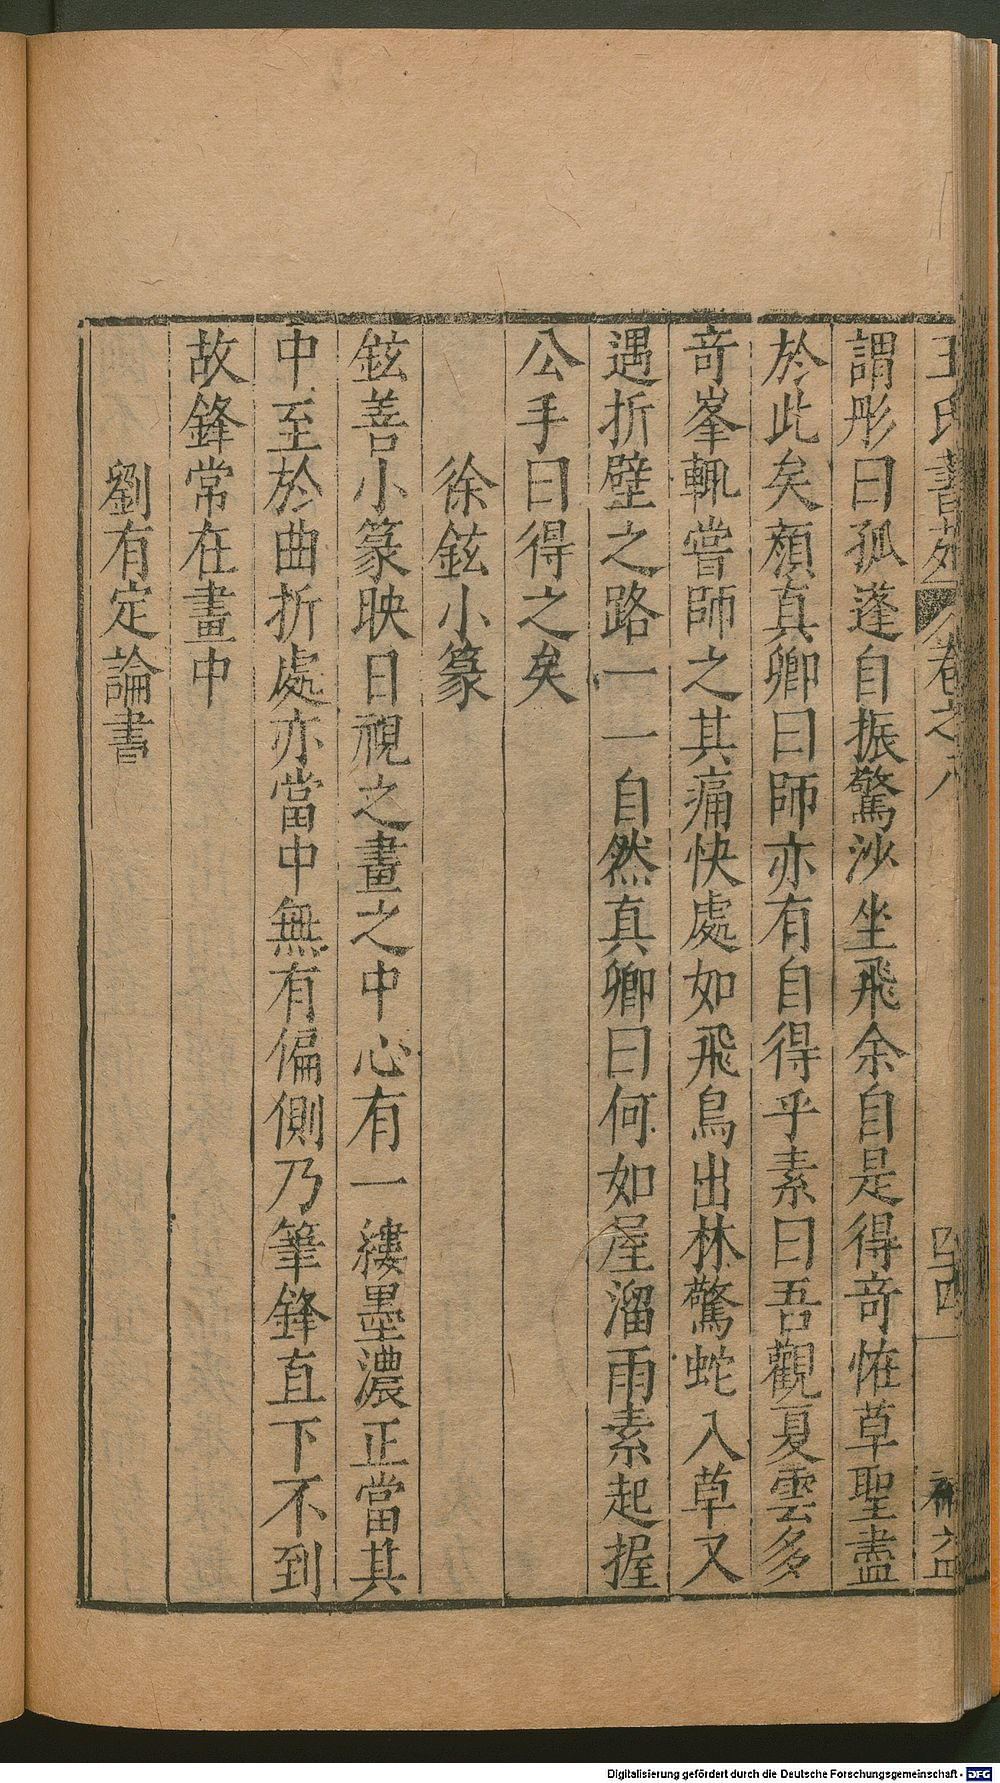 王氏書苑 卷之八
謂彤曰孤蓬自振驚沙坐飛余自是得奇恠草聖盡
於此矣顔真卿曰師亦有自得乎素曰吾觀夏雲多
奇峯輒嘗師之其痛快處如飛鳥出林驚蛇入草又
遇折壁之路一一自然真卿曰何如屋溜雨素起握
公手曰得之矣
徐鉉小篆
鉉善小篆映日視之畫之中心有一縷墨濃正當其
中至於曲折處亦當中無有偏側乃筆鋒直下不到
故鋒常在畫中
劉有定論書
Digitalisierung gefördert durch die Deutsche Forschungsgemeinschaft - DFG